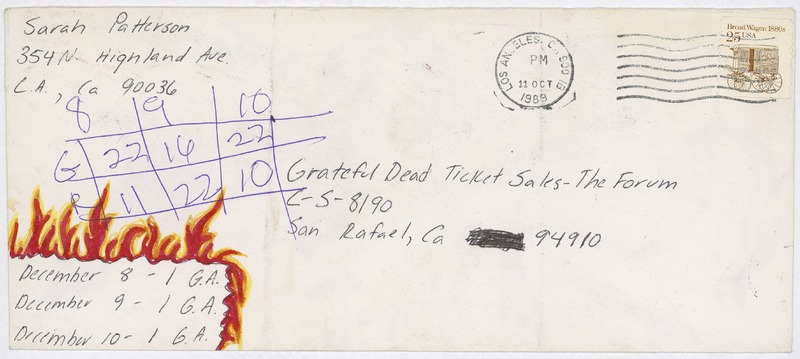 Sarah Patterson
354 N. Highland Ave.
L.A., Ca 90036
Bread Wagon 1880s
25 USA
LOS ANGELES, CA 900
PM
11 OCT
1989
8 9 10
G 22 14 22
R 11 22 10
Grateful Dead Ticket Sales-The Forum
C-S-8190
San Rafael, Ca 94910
December 8 - 1 G.A.
December 9 - 1 G.A.
December 10 - 1 G.A.